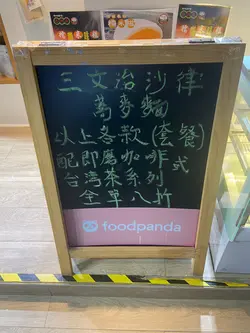 三文治沙律
蕎麥麵
以上各款(套餐)
配即磨咖啡式
台灣茶系列
全單八折
foodpanda